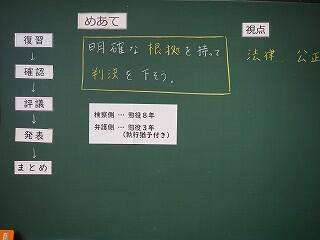 めあて
明確な根拠を持って
判決を下そう。
視点
法律、公正
復習
↓
確認
↓
評議
↓
発表
↓
まとめ
検察側 … 懲役8年
弁護側 … 懲役3年
(執行猶予付き)